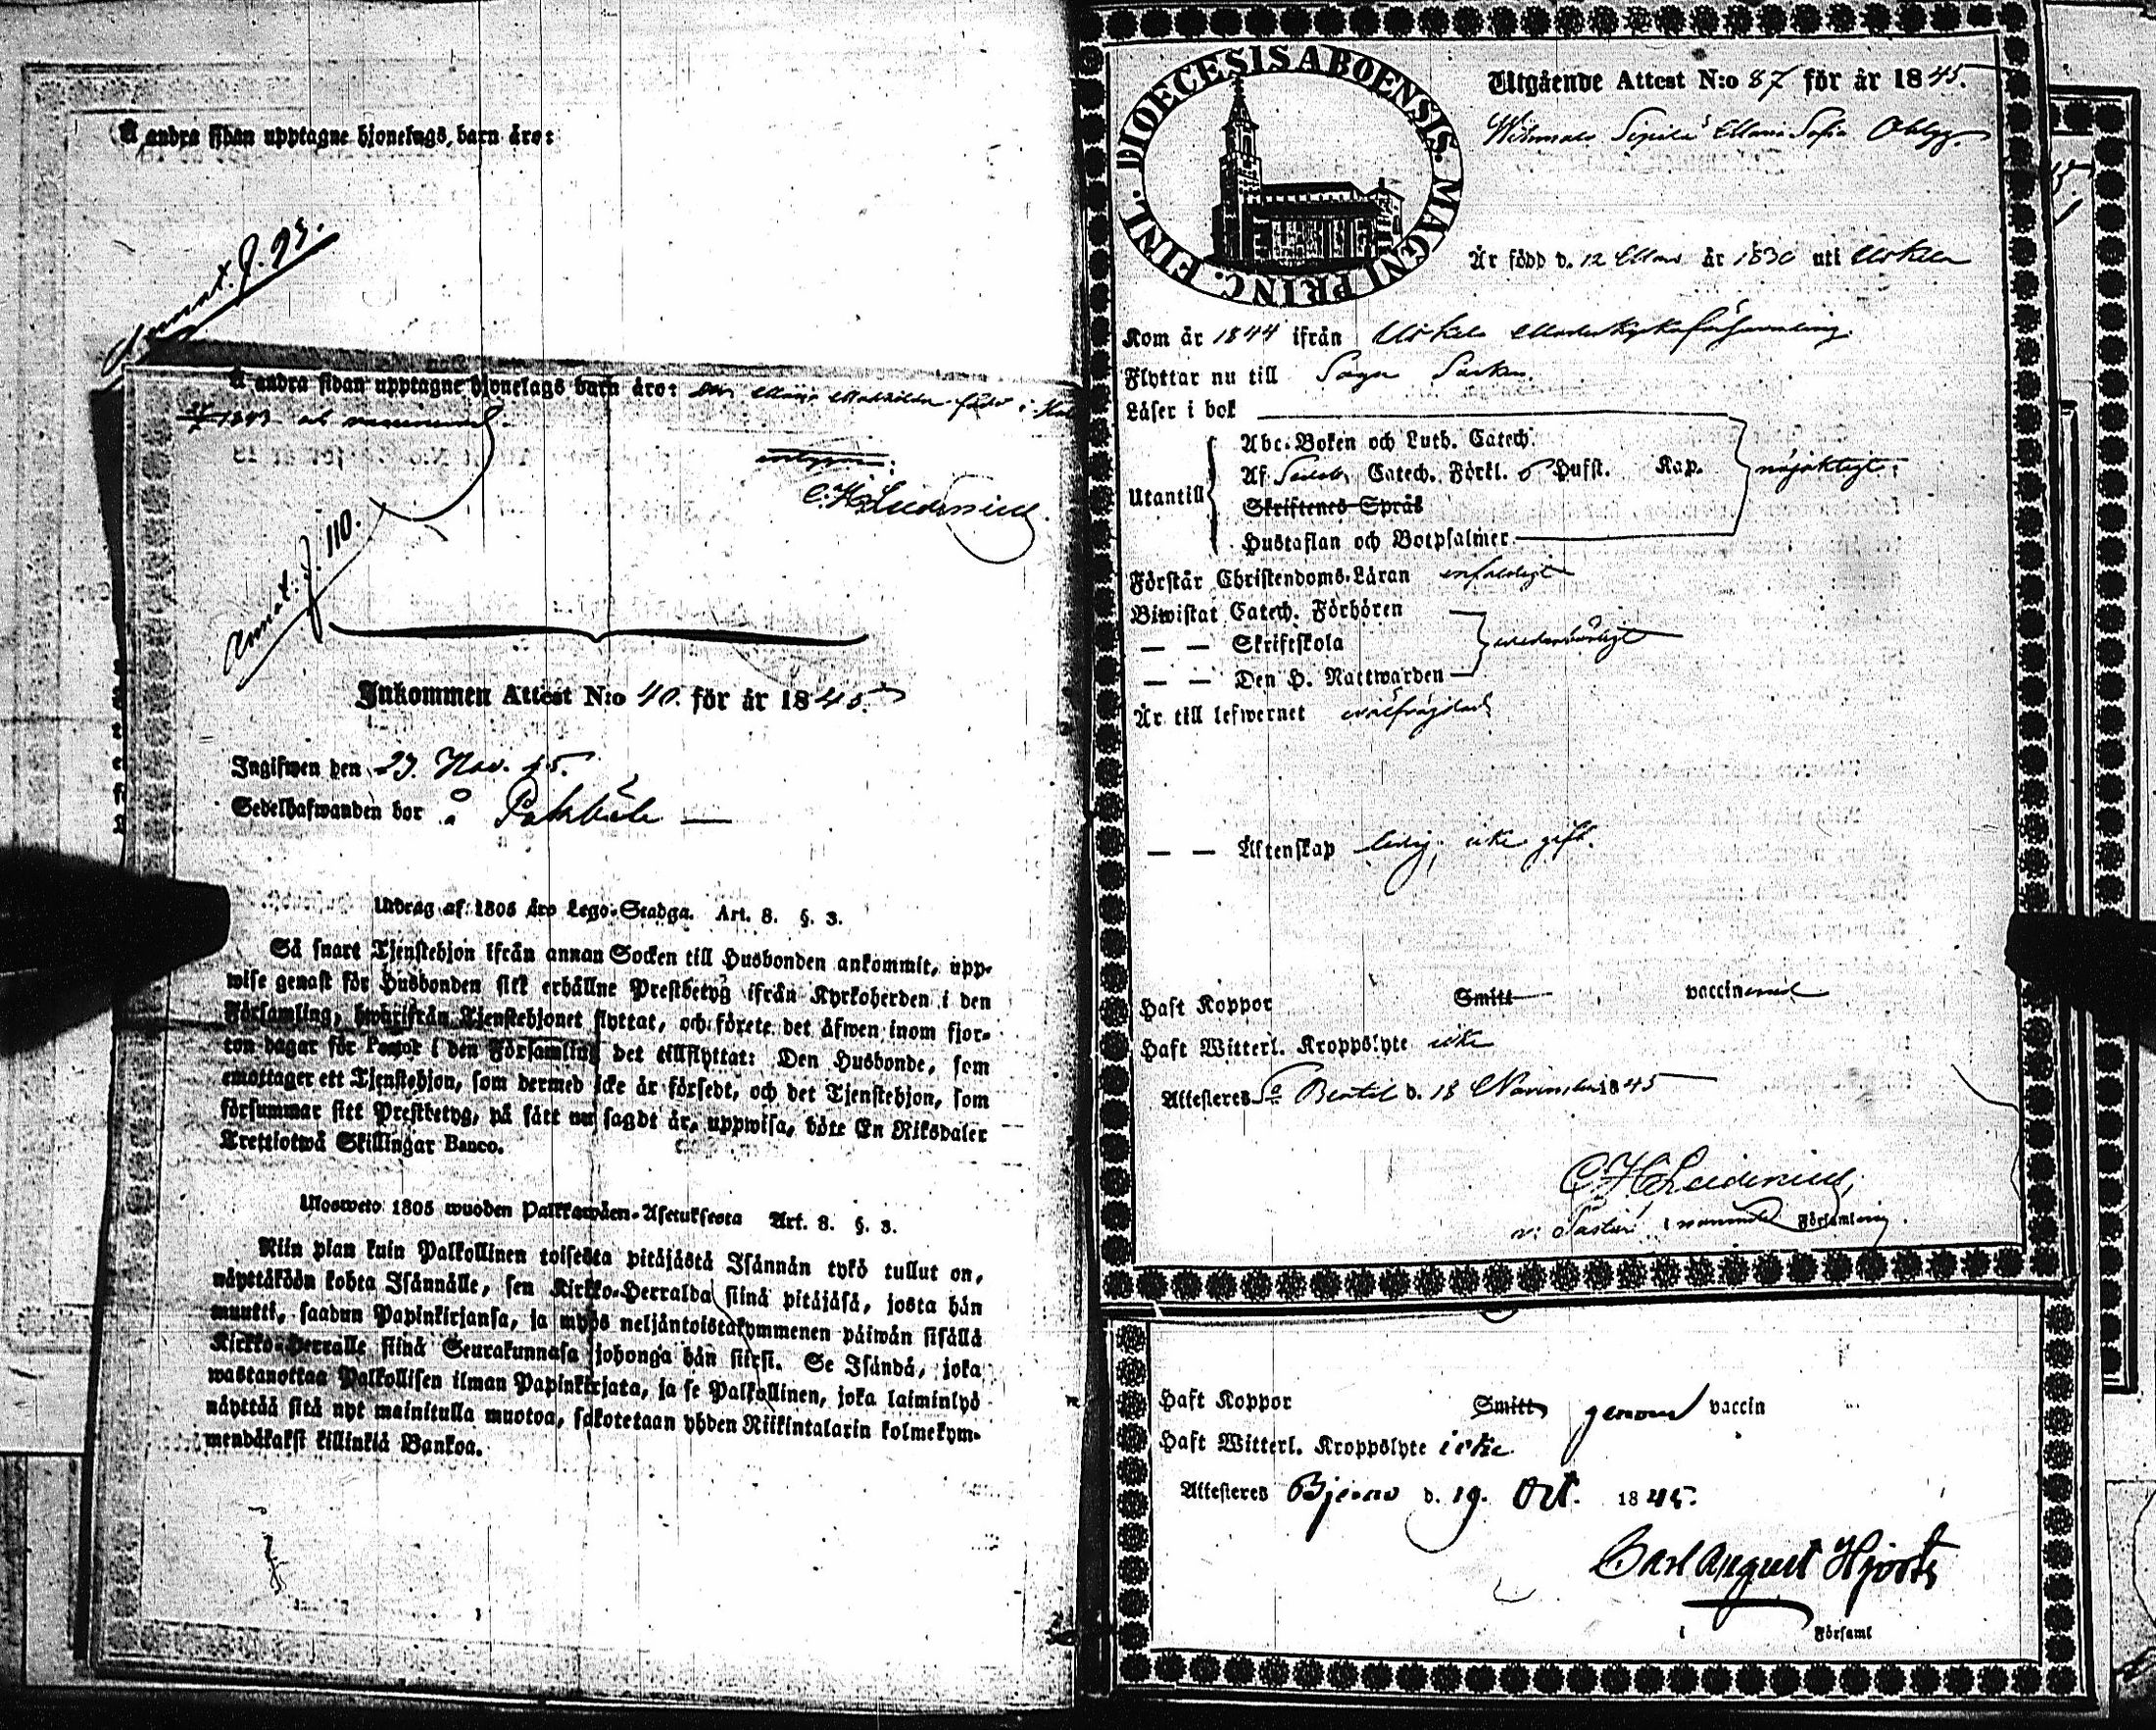 Å andra sidan upptagne hjonelags barn äro:
Annot. p. 93.
Å andra sidan upptagne hjonelags barn äro: Maria Mathilda född i
1843
C. H. Leidenius
Annot. p. 110.
Inkommen Attest N:o 40. för år 1845.
Ingifwen den 23. Nov. 45.
Sedelhafwanden bor å
Utdrag af 1805 års Lego-Stadga. Art. 8. §. 3.
Så snart Tjenstehjon ifrån annan Socken till Husbonden ankommit, upp-
wise genast för Husbonden sitt erhållne Prestbetyg ifrån Kyrkoherden i den
Församling, hwarifrån Tjenstehjonet flyttat, och förete det äfwen inom fjor-
ton dagar för Pastor i den Församling det tillflyttat: Den Husbonde, som
emottager ett Tjenstehjon, som dermed icke är försedt, och det Tjenstehjon, som
försummar sitt Prestbetyg, på sätt nu sagdt är, uppwisa, böte En Riksdaler
Trettiotwå Skillingar Banco.
Ulosweto 1805 wuoden Palkkawäen-Asetuksesta Art. 8. §. 3.
Niin pian kuin Palkollinen toisesta pitäjästä Isännän tykö tullut on,
näyttäköön kohta Isännälle, sen Kirkko-Herralda siinä pitäjäsä, josta hän
muutti, saadun Papinkirjansa, ja myös neljäntoistakymmenen päiwän sisällä
Kirkko-Herralle siinä Seurakunnasa johonga hän siirsi. Se Isändä, joka
wastanottaa Palkollisen ilman Papinkirjata, ja se Palkollinen, joka laiminlyö
näyttää sitä nyt mainitulla muotoa, sakotetaan yhden Riikintalarin kolmekym-
mendäkaksi killinkiä Bankoa.
DIOECESIS ABOENSIS. MAGNI PRINC. FINL.
Utgående Attest N:o 87 för år 1845.
Maria Sofia
Är född d. 12 Mars år 1830 uti Uskela
Kom år 1844 ifrån Uskela Moderkyrkoförsamling
Flyttar nu till Socken
Läser i bok
Abc-Boken och Luth. Catech.
Af Catech. Förkl. 6 Hufst. Kap.
nöjaktigt
Utantill
Skriftenes Språk
Hustaflan och Botpsalmer
Förstår Christendoms-Läran enfaldigt
Biwistat Catech. Förhören
— — Skriftskola
wederbörligt
— — Den H. Nattwarden
Är till lefwernet wälfrägdad
— — Äktenskap ledig; icke gift.
Haft Koppor Smitt vaccinerad
Haft Witterl. Kroppslyte icke
Attesteres St Bertil d. 18 November 1845
C. H. Leidenius
v: Pastor i nämnde Församling.
Haft Koppor Smitt genom vaccin
Haft Witterl. Kroppslyte icke
Attesteres Bjerno d. 19. Oct. 1845.
Carl August Hjorth
i Församl